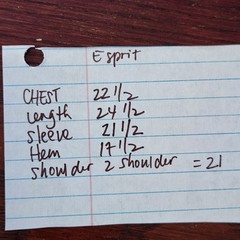 Esprit
CHEST 22 1/2
Length 24 1/2
Sleeve 21 1/2
Hem 17 1/2
Shoulder 2 shoulder = 21